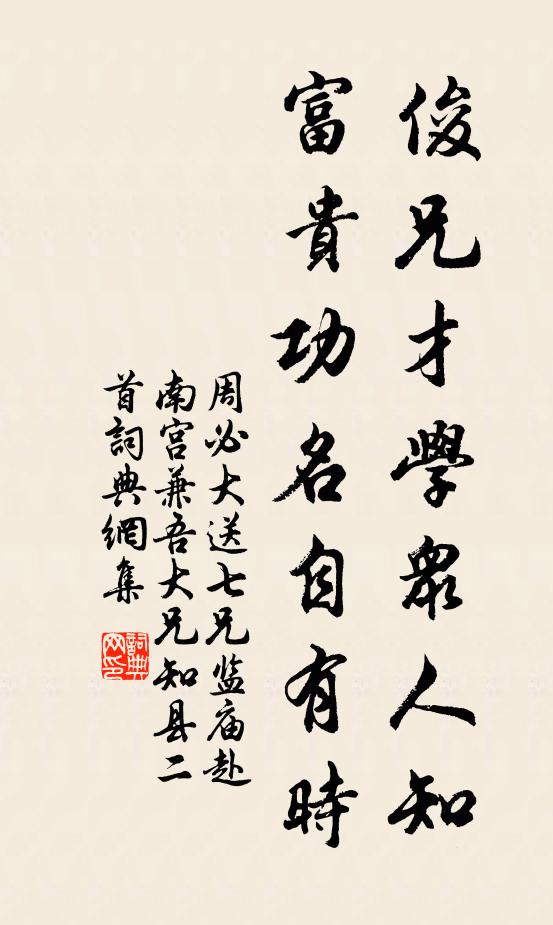 俊兄才學眾人知
富貴功名自有時
周必大送七兄监庙赴
南宫兼吾大兄知县二
首詞典網集
詞典
网印